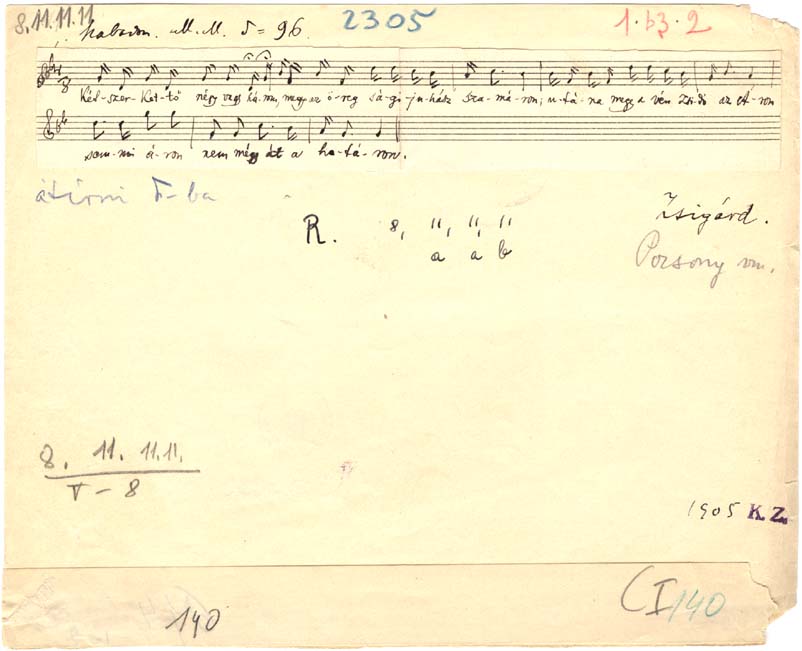 8, 11. 11. 11   2305   1. b3. 2
M. M. ♪= 96.
Két-szer-ket-tő négy vagy három, megy az ö-reg sá-gi ju-hász sza-má-ron; u-tá-na megy a vén zsi-dó az Á-ron
sem-mi á-ron nem mégy át a ha-tá-ron.
átírni ♪-ba
Zsigárd.
R. 8, 11, 11, 11
a a b
Pozsony vm.
8. 11. 11. 11.
V - 8
1905 K. Z.
140
C I 140